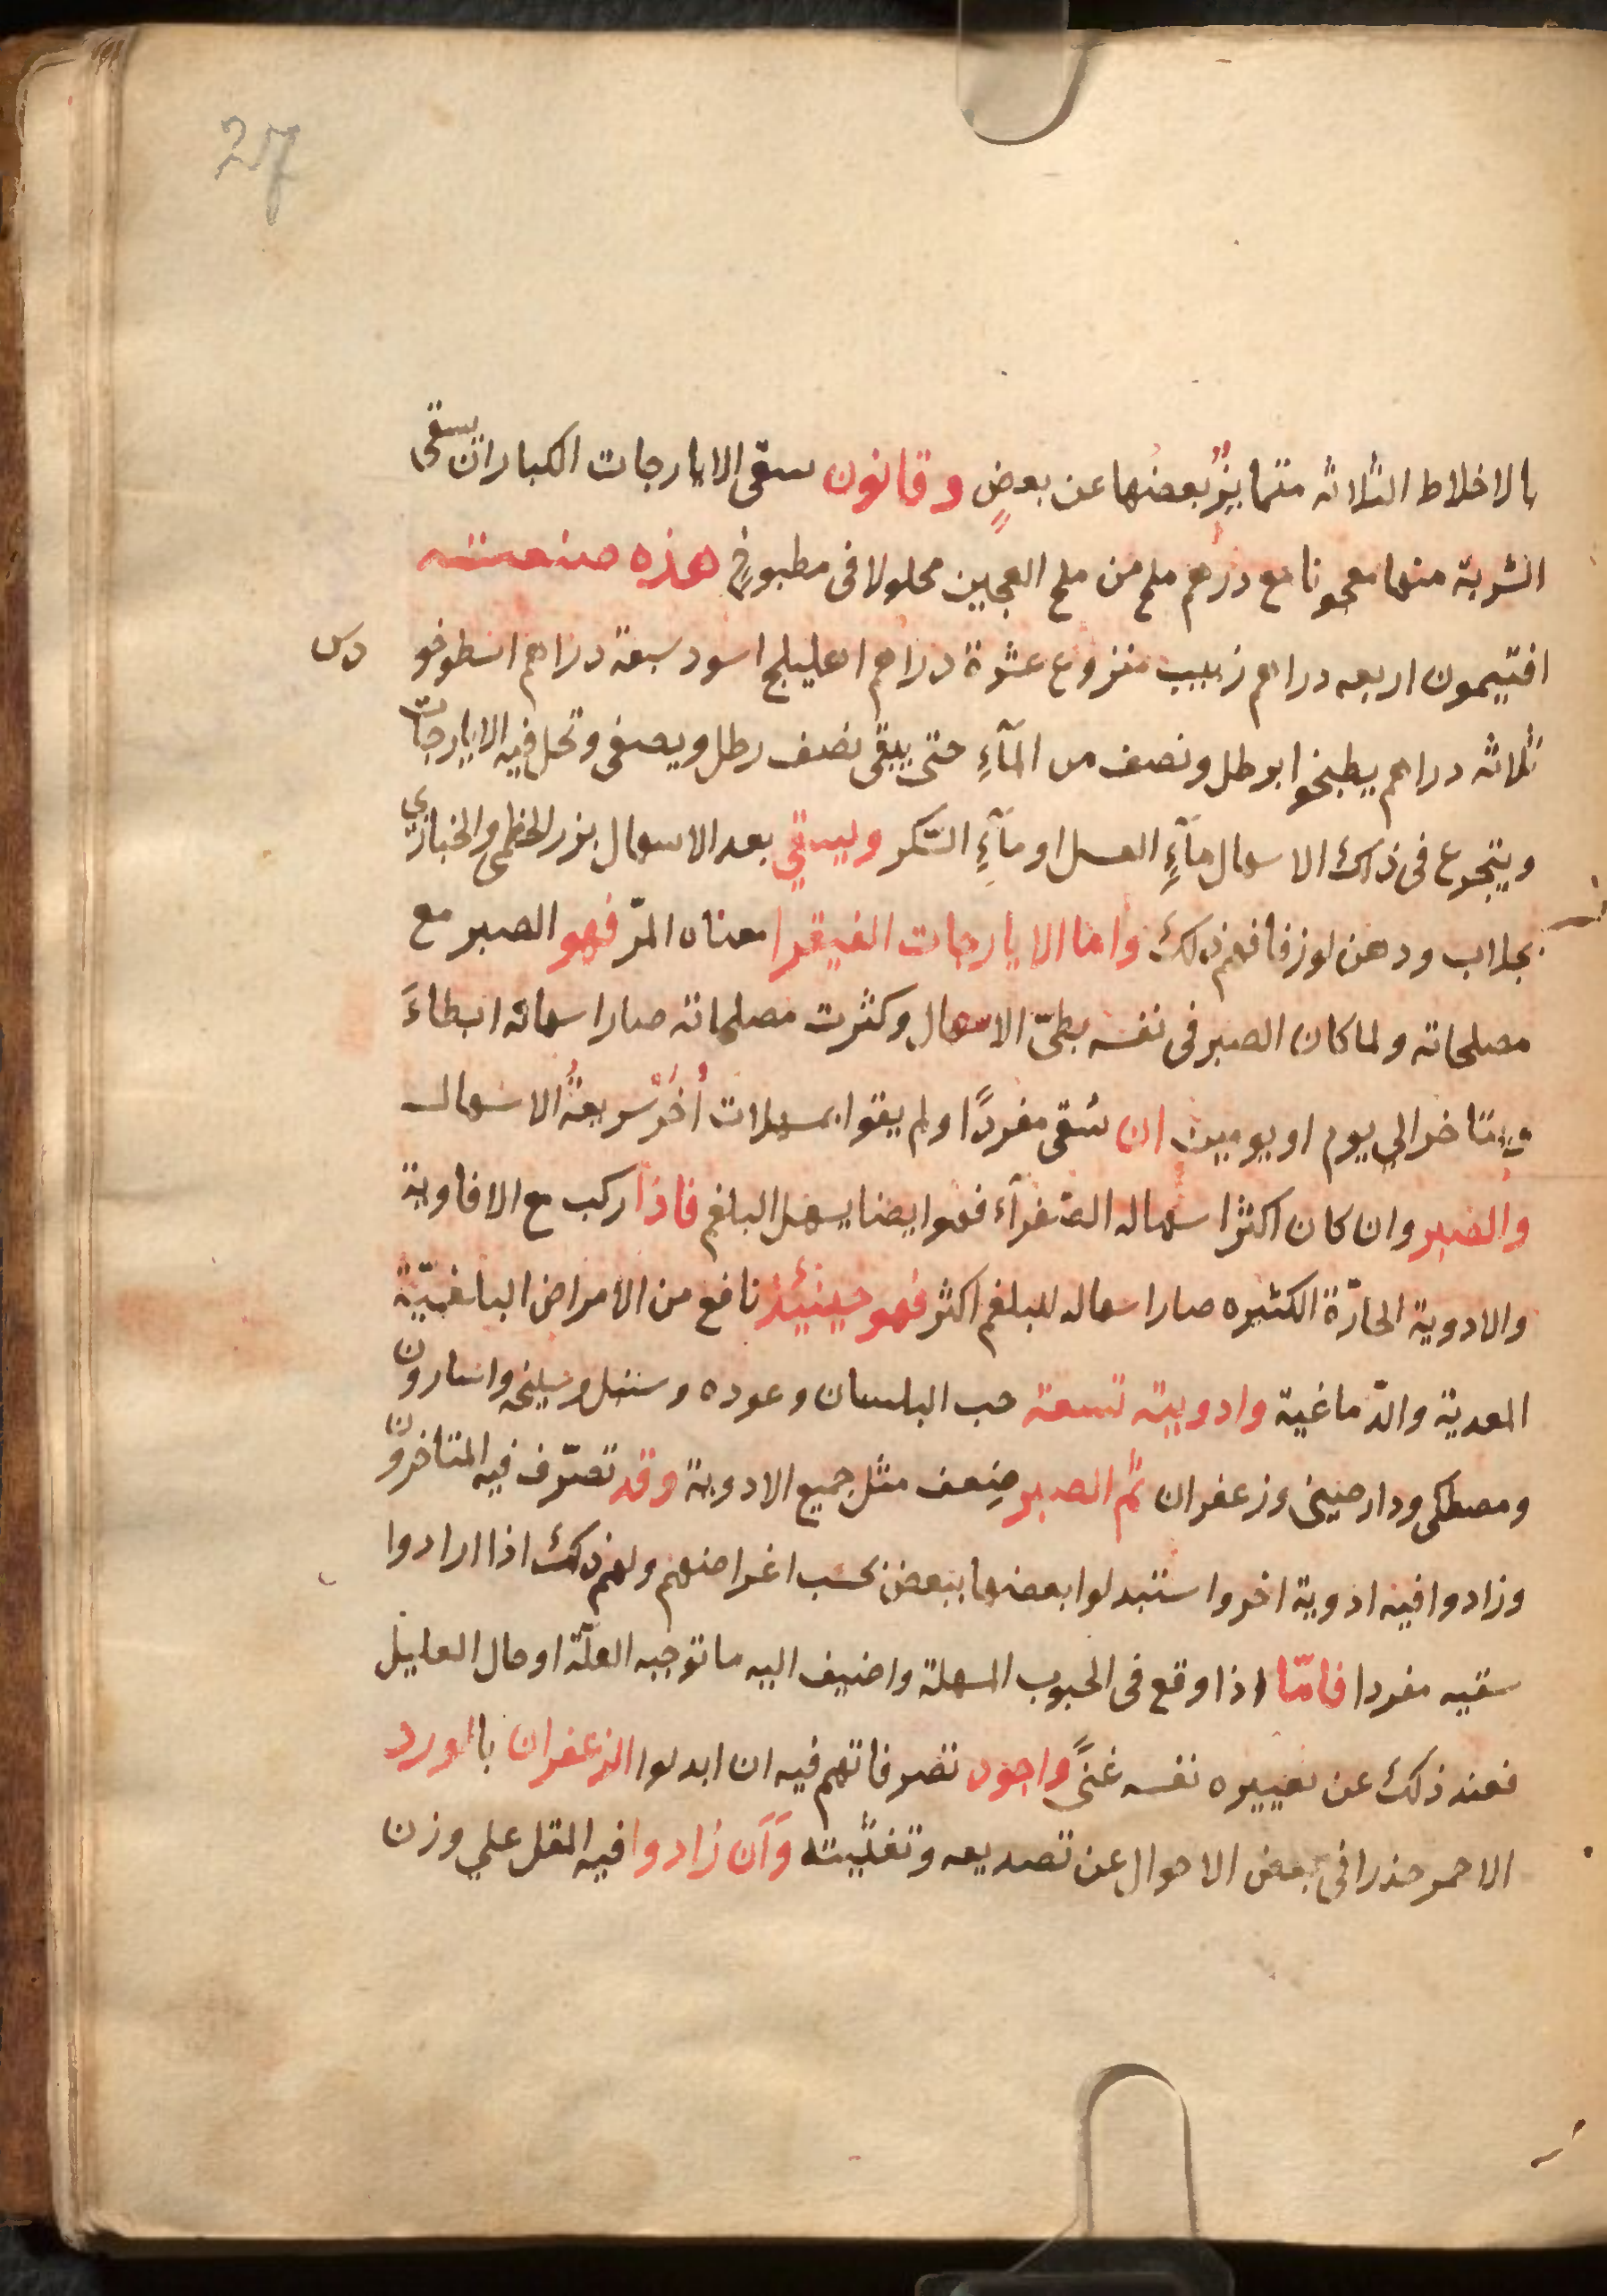 27
بالاخلاط الثلاثه متمايزُ بعضها عن بعضٍ وقانون سقى الايارجات الكبار ان يسقى
الشربة منها معجونا مع درهم ملح من ملح العجين محلولا فى مطبوخٍ هذه صنعته
افتيمون اربعه دراهم زبيب منزوع عشرة دراهم اهليلج اسود سبعة دراهم اسطوخو دس
ثلاثه دراهم يطبخوا برطل ونصف من المآءِ حتى يبقى نصف رطل ويصفى وتحل فيه الايارجات
ويتجرع فى ذلك الاسهال مآءِ العسل او مآءِ السّكر ويسقي بعد الاسهال بزر الخطمى والخبازي
بجلاب ودهن لوز فافهم ذلك واما الايارجات الفيقرا معناه المرّ فهو الصبر مع
مصلحاته ولما كان الصبر فى نفسه بطىّ الاسهال وكثرت مصلحاته صار اسهاله ابطاءَ
ويتاخر الي يوم او يومين ان سُقى مفردًا ولم يقوا بمسهلات أُخَرْ سريعةُ الاسهال
والصبر وان كان اكثر اسهاله الصّفرآء فهو ايضا يسهل البلغم فاذا ركب مع الافاوية
والادوية الحارّة الكثيره صار اسهاله للبلغم اكثر فهو حينئِذ نافع من الامراض البلغميّة
المعدية والدّماغية وادويته تسعة حب البلسان وعوده وسنبل وسليخه واسارون
ومصطكى ودارصينى وزعفران ثم الصبر ضِعف مثل جميع الادوية وقد تصرّف فيه المتاخرون
وزادوا فيه ادوية اخر واستبدلوا بعضها ببعض بحسب اغراضهم ولهم ذلك اذا ارادوا
سقيه مفردا فامّا اذا وقع فى الحبوب المسهلة واضيف اليه ما توجبه العلّة او حال العليل
فعند ذلك عن تغييره نفسه غنًى واجود تصرفاتهم فيه ان ابدلوا الزعفران بالورد
الاحمر حذرا فى بعض الاحوال عن تصديعه وتغثيته وَان زادوا فيه المقل علي وزن